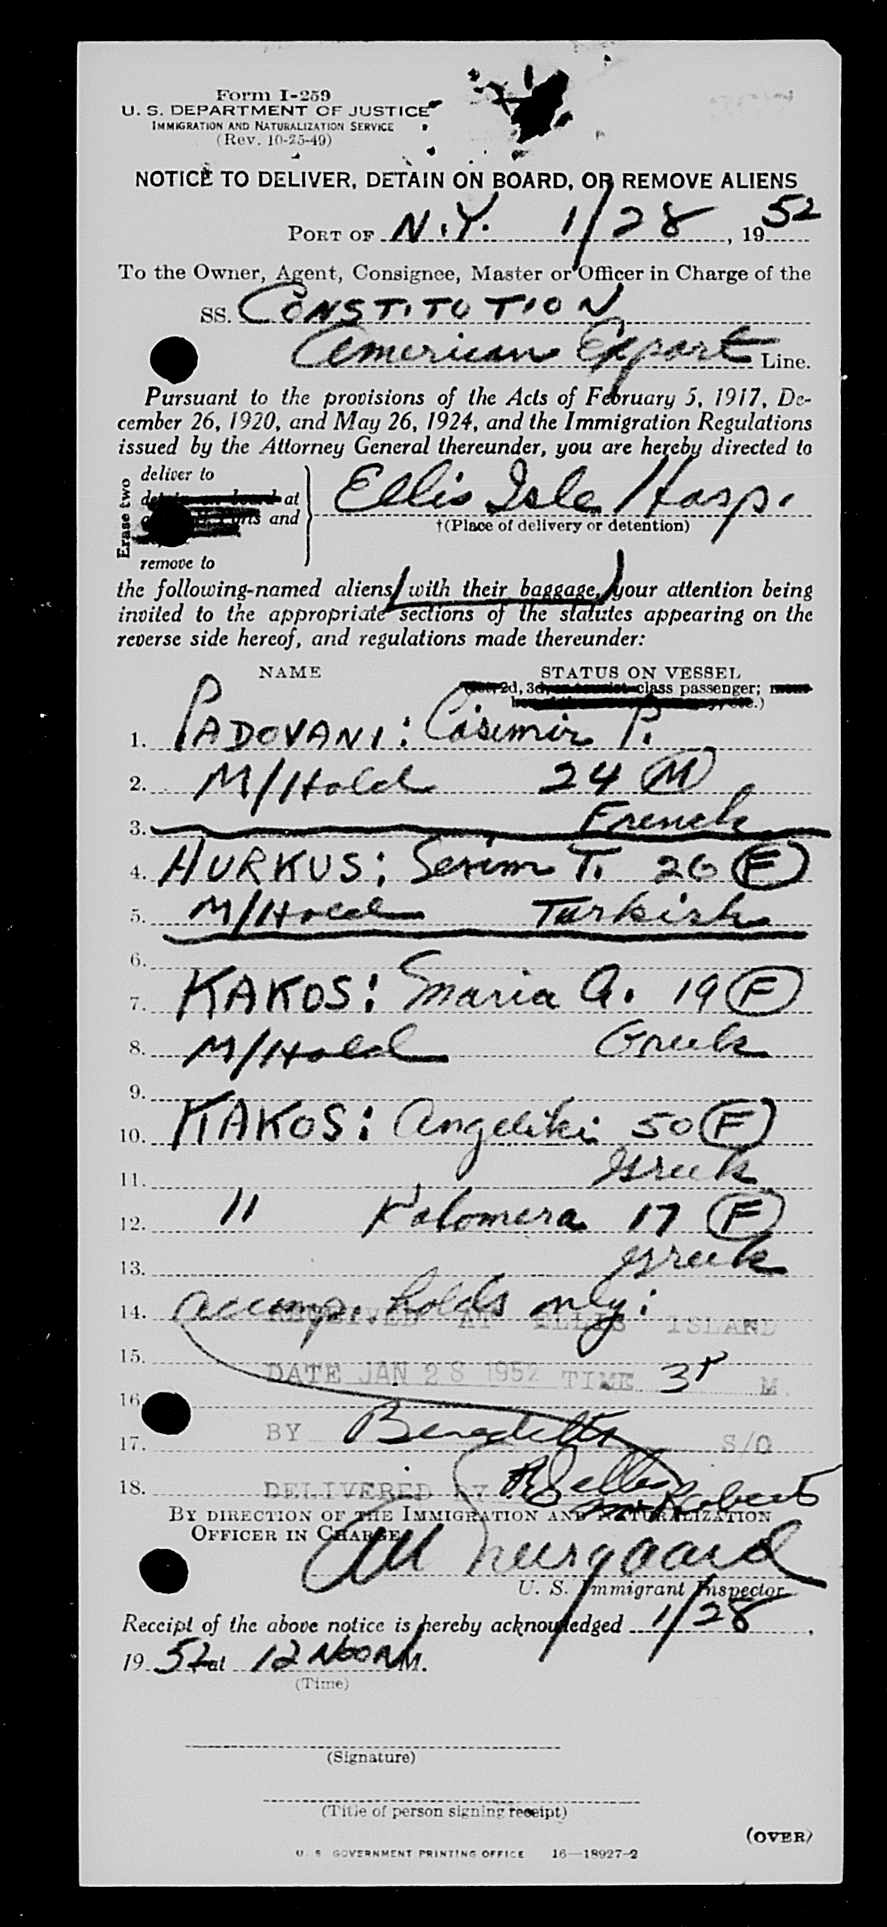 Form I-259
U. S. DEPARTMENT OF JUSTICE
IMMIGRATION AND NATURALIZATION SERVICE
(Rev. 10-25-49)
NOTICE TO DELIVER, DETAIN ON BOARD, OR REMOVE ALIENS
PORT OF N.Y. 1/28, 1952
To the Owner, Agent, Consignee, Master or Officer in Charge of the
SS. CONSTITUTION
American Export Line.
Pursuant to the provisions of the Acts of February 5, 1917, De-
cember 26, 1920, and May 26, 1924, and the Immigration Regulations
issued by the Attorney General thereunder, you are hereby directed to
Erase two
deliver to
at
and
remove to
Ellis Isle Hosp.
†(Place of delivery or detention)
the following-named aliens, with their baggage, your attention being
invited to the appropriate sections of the statutes appearing on the
reverse side hereof, and regulations made thereunder:
NAME STATUS ON VESSEL
2d, 3d, class passenger;
1. PADOVANI: Casimir P.
2. M/Hold 24 M
3. French
4. HURKUS: T. 26 F
5. M/Hold Turkish
6.
7. KAKOS: Maria A. 19 F
8. M/Hold Greek
9.
10. KAKOS: Angeliki 50 F
11. Greek
12. " Kalomera 17 F
13. Greek
14. accomp. holds only:
RECEIVED AT ELLIS ISLAND
15.
DATE JAN 28 1952 TIME 3P M.
16.
17. BY Benedetto S/O
18. DELIVERED BY
BY DIRECTION OF THE IMMIGRATION AND NATURALIZATION
OFFICER IN CHARGE
U. S. Immigrant Inspector.
Receipt of the above notice is hereby acknowledged 1/28,
1952 at 12 NOON M.
(Time)
(Signature)
(Title of person signing receipt)
(OVER)
U. S. GOVERNMENT PRINTING OFFICE 16—18927-2